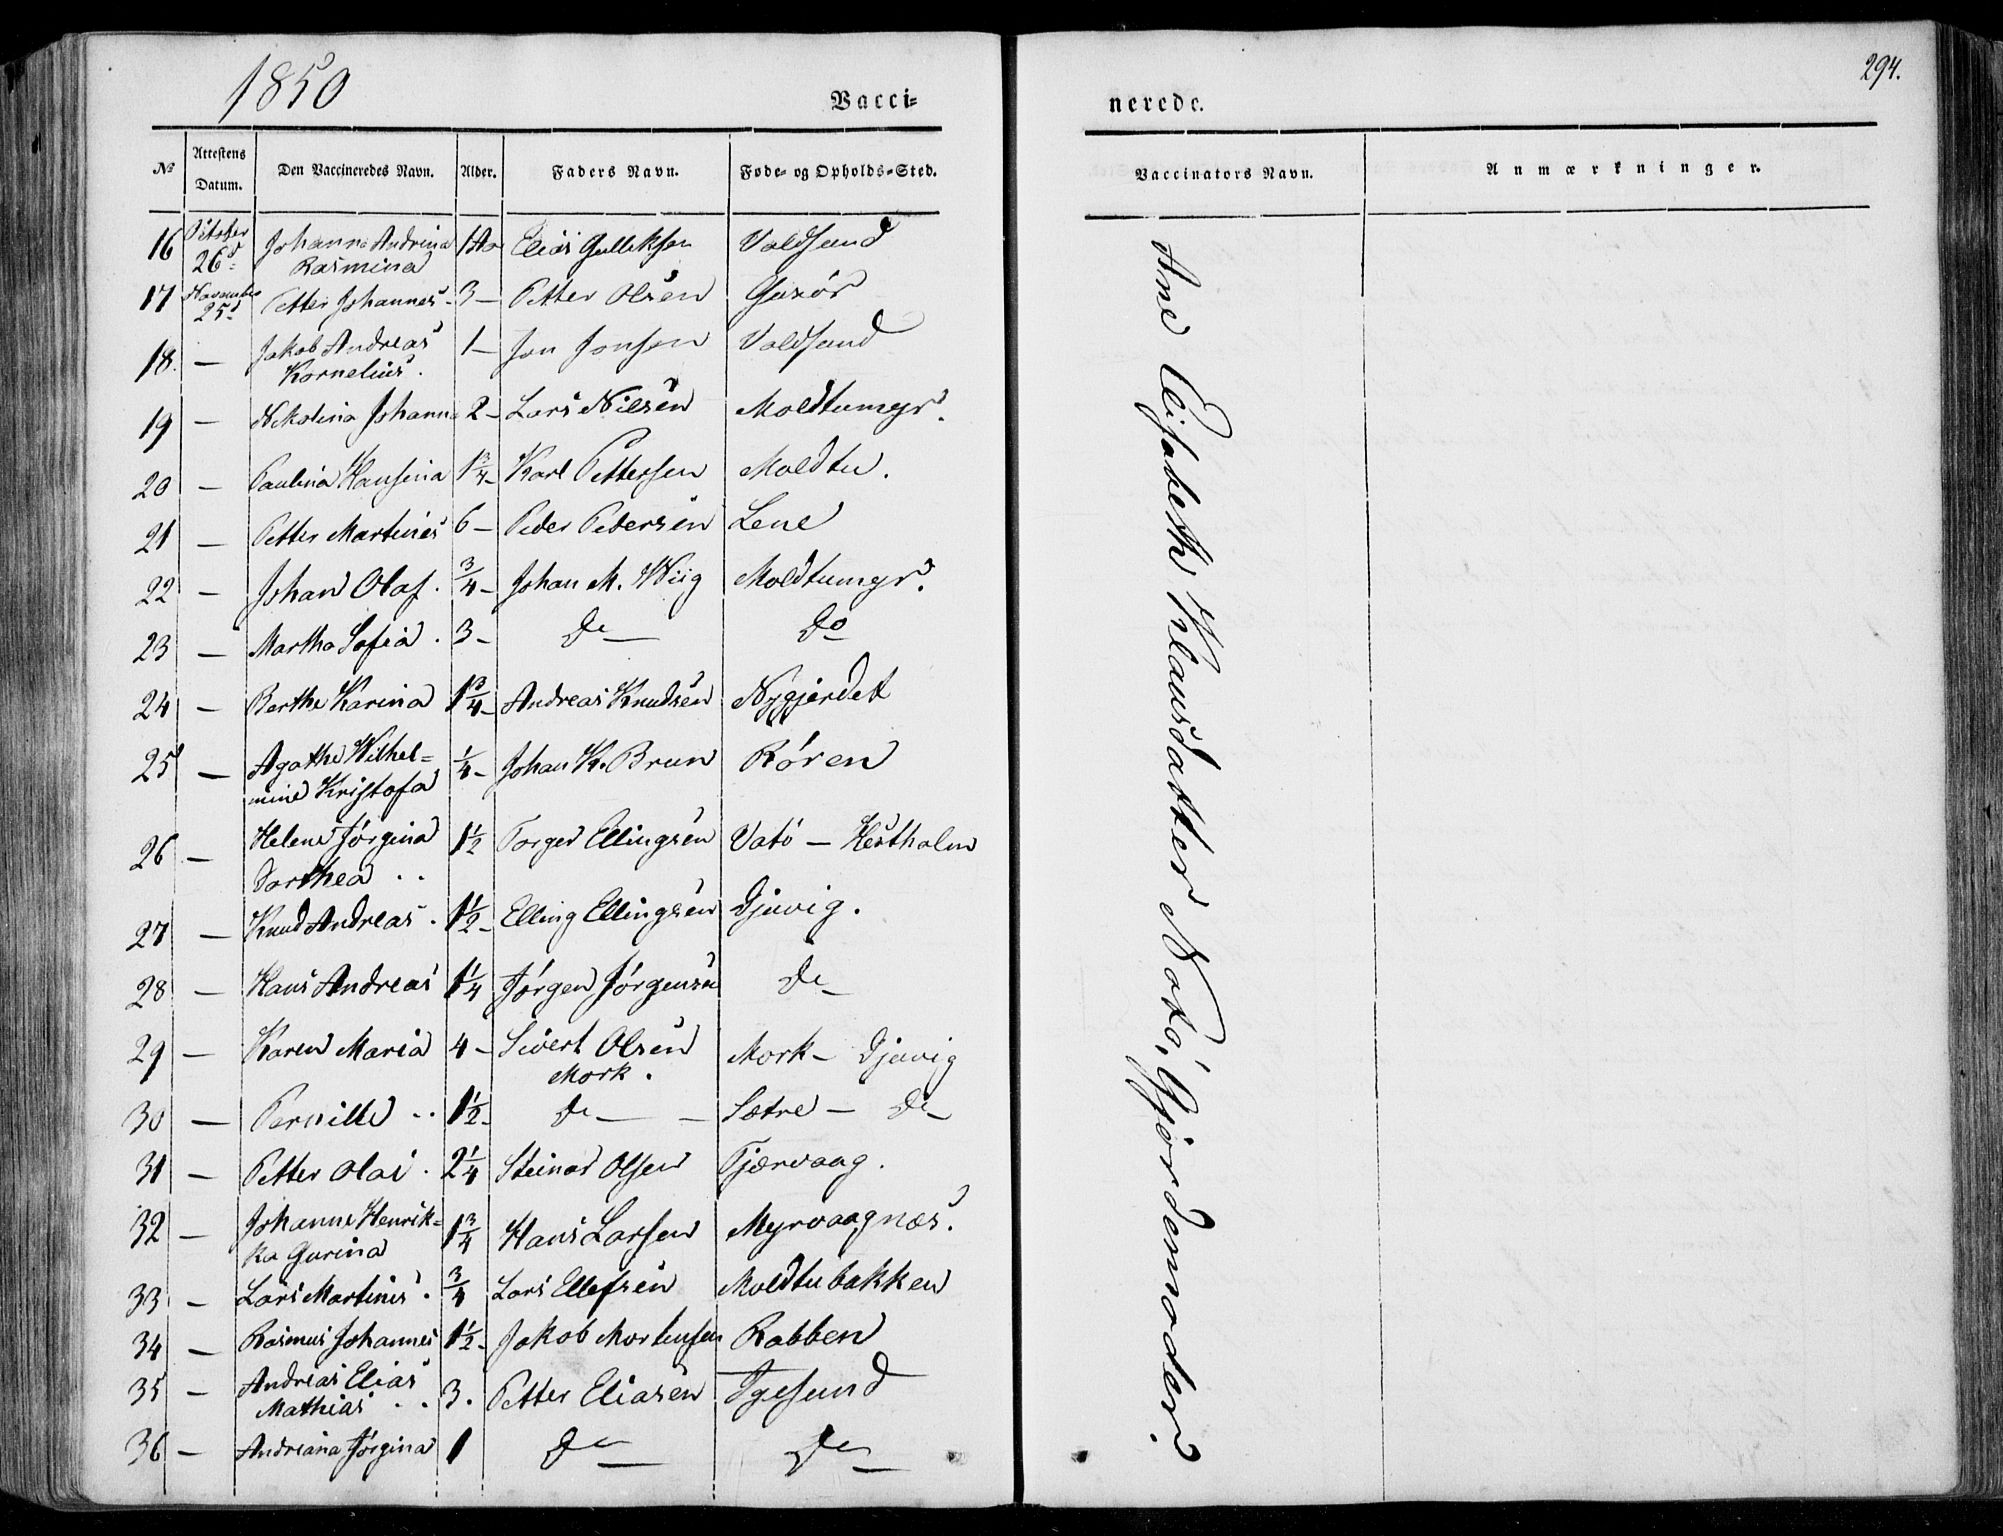 1850
294.
Vacci=
nerede.
No
Attestens Datum.
Den Vaccineredes Navn.
Alder.
Faders Navn.
Føde= og Opholds=Sted.
Vaccinators Navn.
Anmærkninger.
16 Oktober 26d Johanna Andrina Rasmina 1 Aar Elias Gulleksen Voldsund
17 November 25d Petter Johannes 3 – Petter Olsen
18. — Jakob Andreas Kornelius. 1 – Jon Jonsen Voldsund
19 — Nikolina Johanna 2 – Lars Nilsen Moldtumyr.
20 — Paulina Hansina 1 3/4 – Karl Pettersen Moldtu.
21 — Petter Martinus 6 – Peder Pedersen Lene
22 — Johan Olaf. 3/4 – Johan M. Wiig Moldtumyr.
23 — Martha Sofia. 3 – Do — Do
24 — Berthe Karina 1 3/4 – Andreas Knudsen Nygjerdet
25 — Agathe Wilhel=
mine Kristofa 1/4 – Johan K. Brun Røren
26 — Helene Jørgina
Dorthea .. 1 1/2 Torger Ellingsen Vatö — Hestholm
27 — Knud Andreas. 1 1/2 – Elling Ellingsen Djuvig.
28 — Hans Andreas 1 1/4 Jørgen Jørgensen Do –
29 — Karen Maria 4 – Sivert Olsen
Mork. Mork – Djuvig
30 — Pernille .. 1 1/2 – Do — – Sætre – Do
31 — Petter Olai. 2 1/4 Steinar Olsen Tjærvaag.
32 — Johanne Henrik=
ka Gurina 1 3/4 Hans Larsen Myrvaagnæs.
33 — Lars Martinus. 3/4 Lars Ellefsen Moldtubakken
34 — Rasmus Johannes 1 1/2 – Jakob Mortensen Robben
35 — Andreas Elias
Mathias .. 3. Petter Eliasen Igesund
36 — Andreana Jørgina 1 Do — Do —
Ane Elisabeth Klausdatter Notö, Gjordemoder.